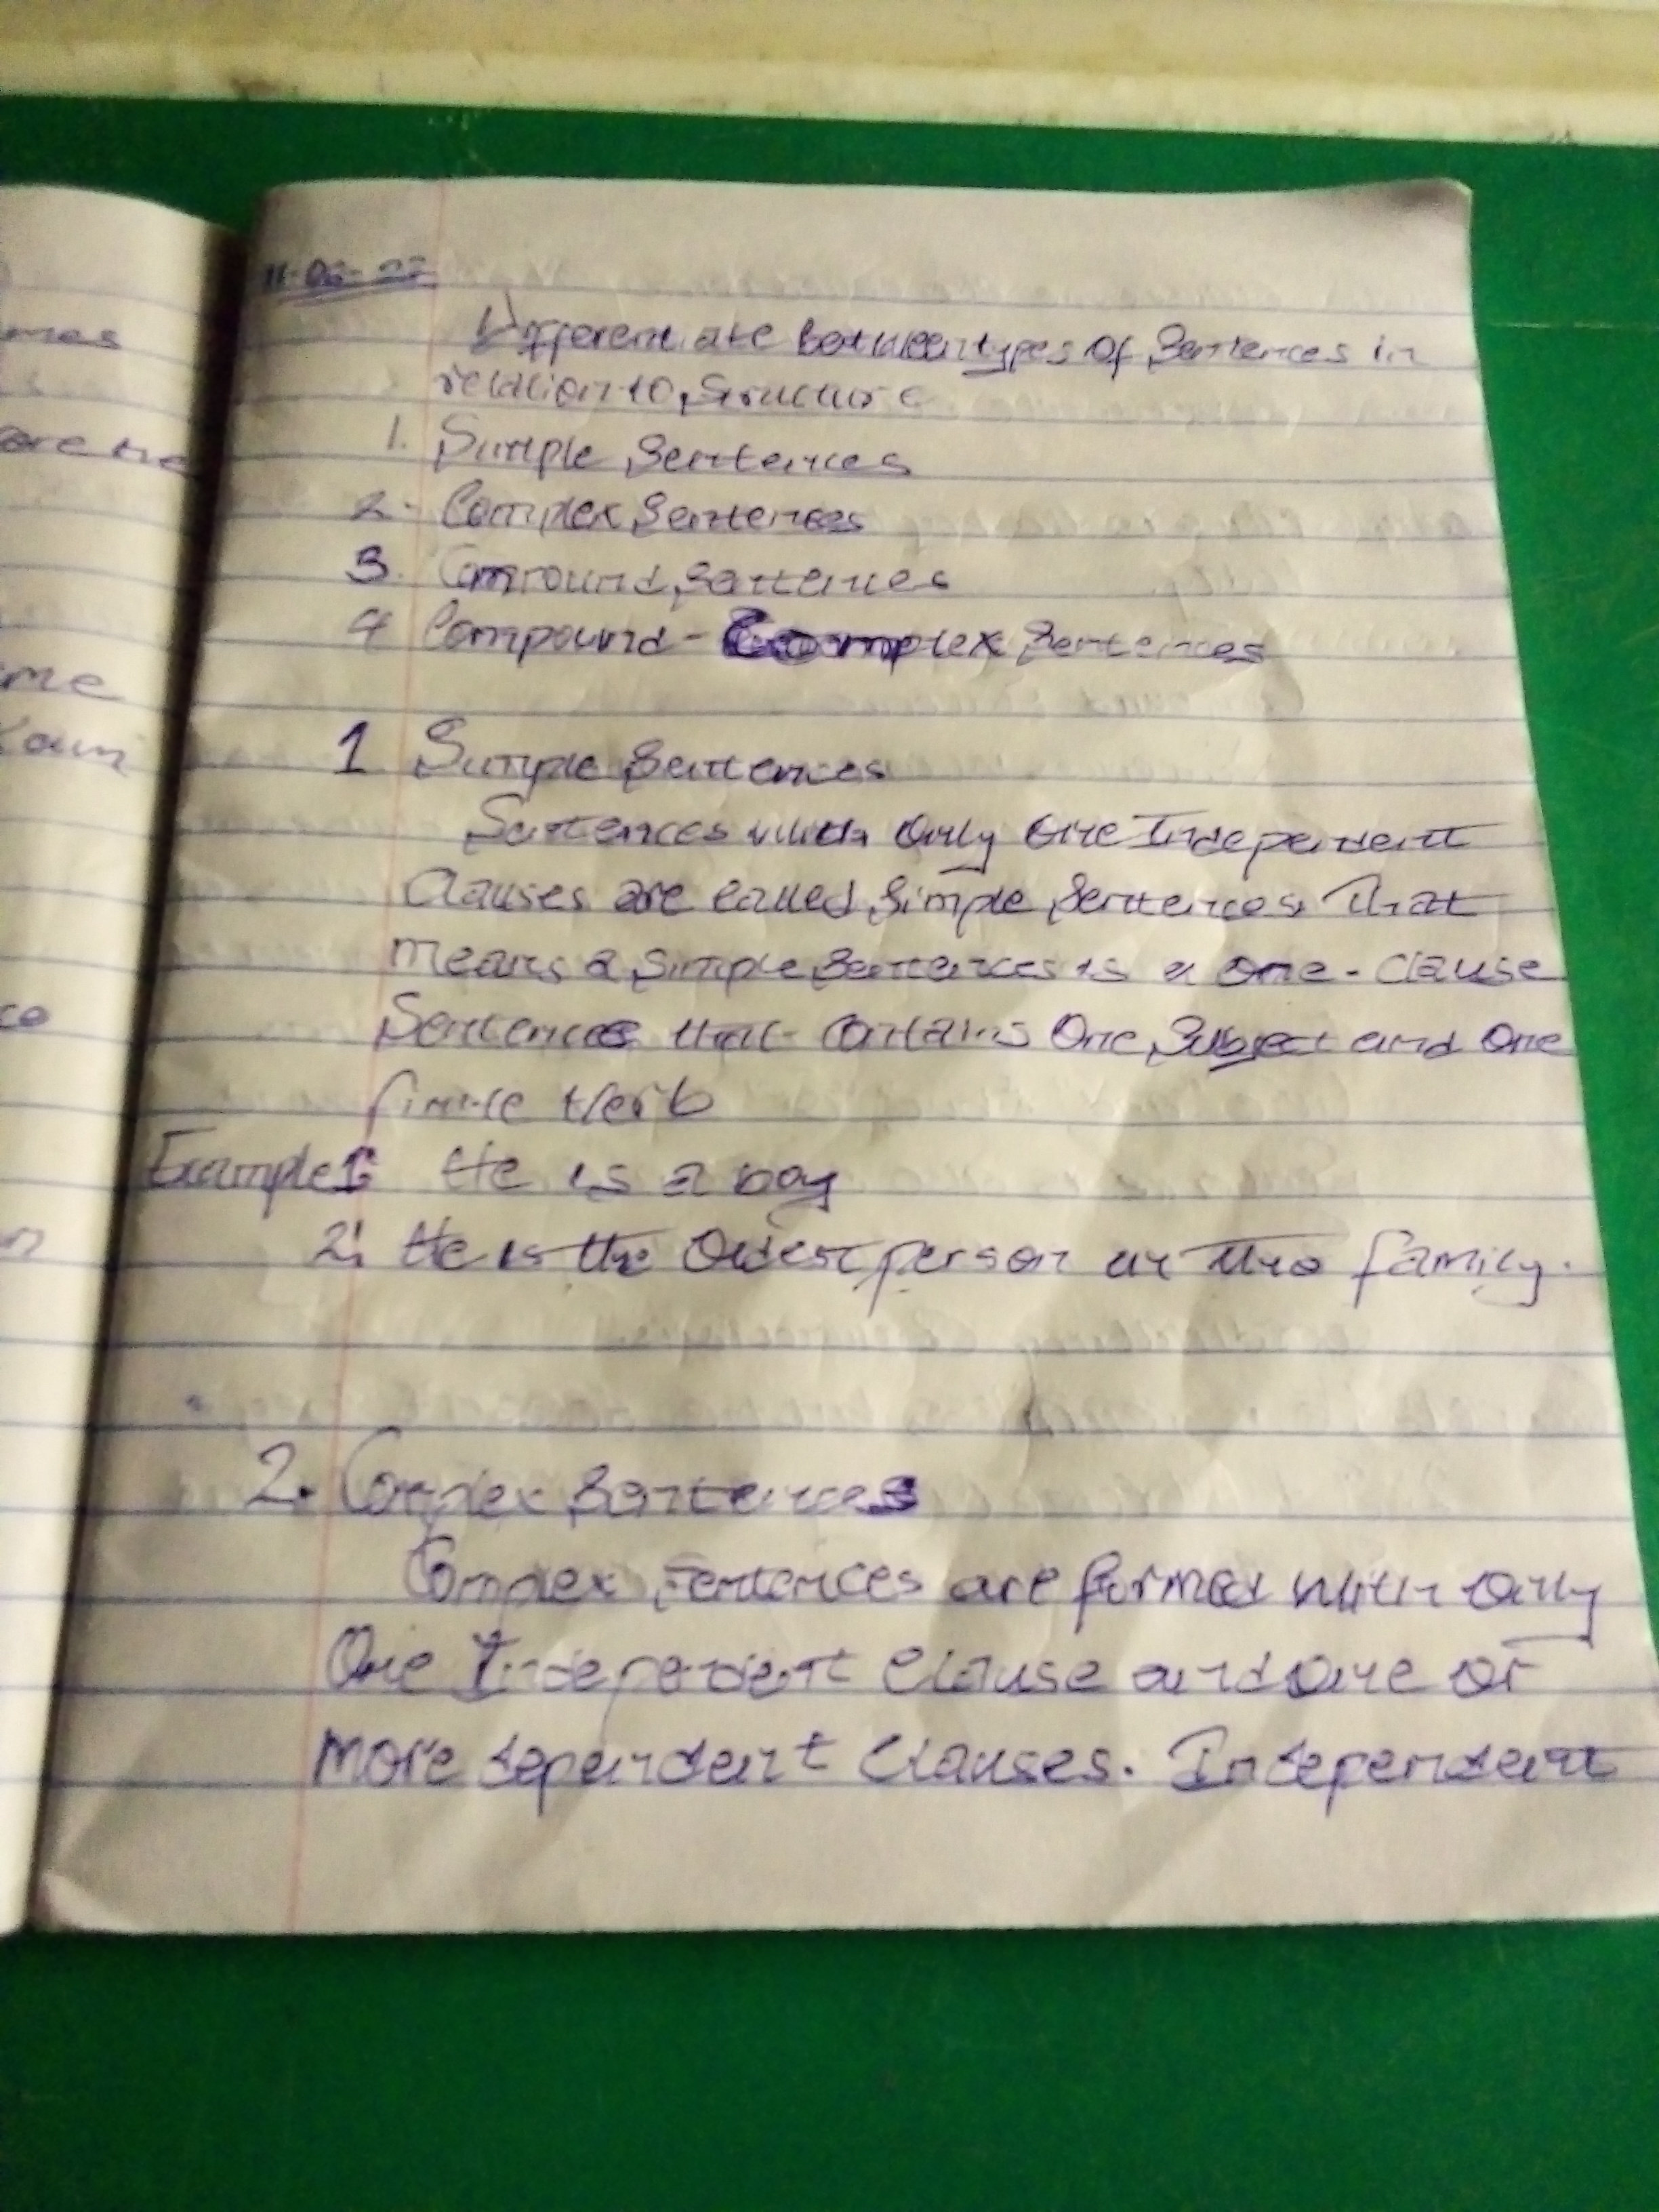 mes
are the
me
11-06-22
Differentiate between types of Sentences in
relation to Structure
1. Simple Sentences
2. Complex Sentences
3. Compound Sentences
4 Compound - Complex Sentences
1 Simple Sentences
Sentences with only one Independent
Clauses are called Simple Sentences. That
means a Simple Sentences is a one-clause
Sentences that contains One Subject and One
finite Verb
Example 1: He is a boy
2. He is the Oldest person in the family.
2. Complex Sentences
Complex sentences are formed with only
One Independent clause and one or
more dependent Clauses. Independent